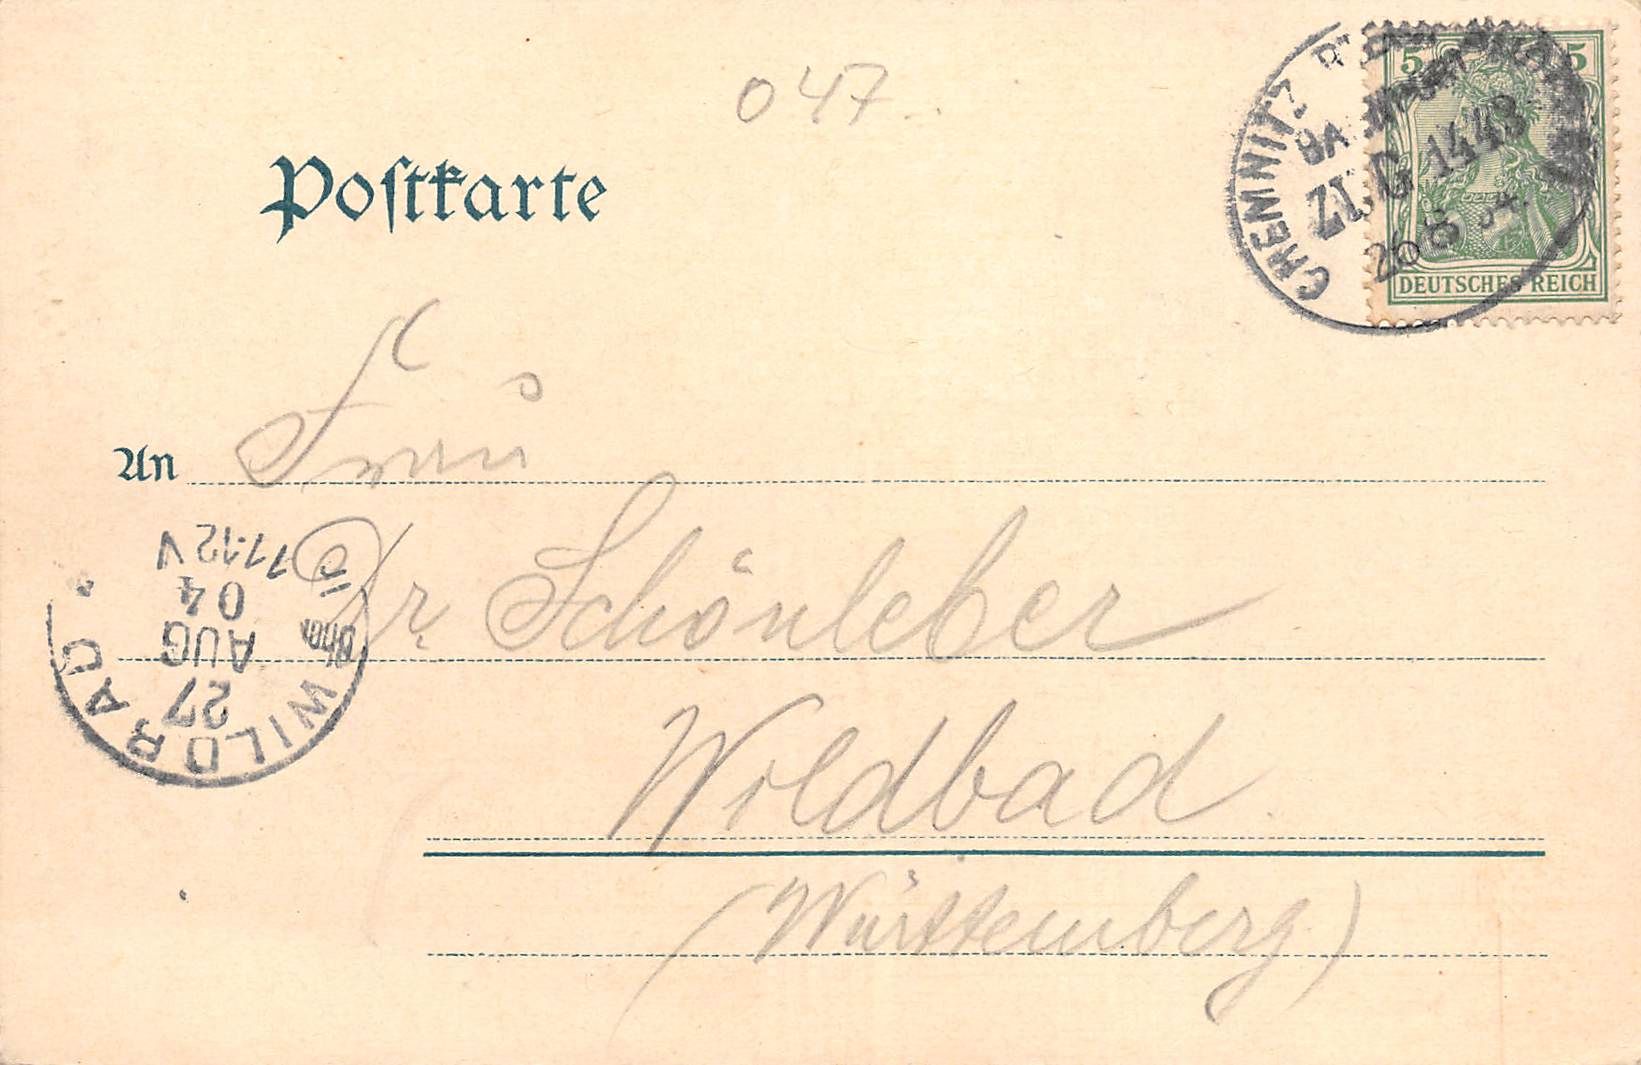 047
Postkarte
5 5
CHEMNITZ
ZUG 1448
26 8 04
DEUTSCHES REICH
An Frau
Dr Schönleber
Wildbad
(Württemberg)
WILDBAD
27
AUG
04
11-12V